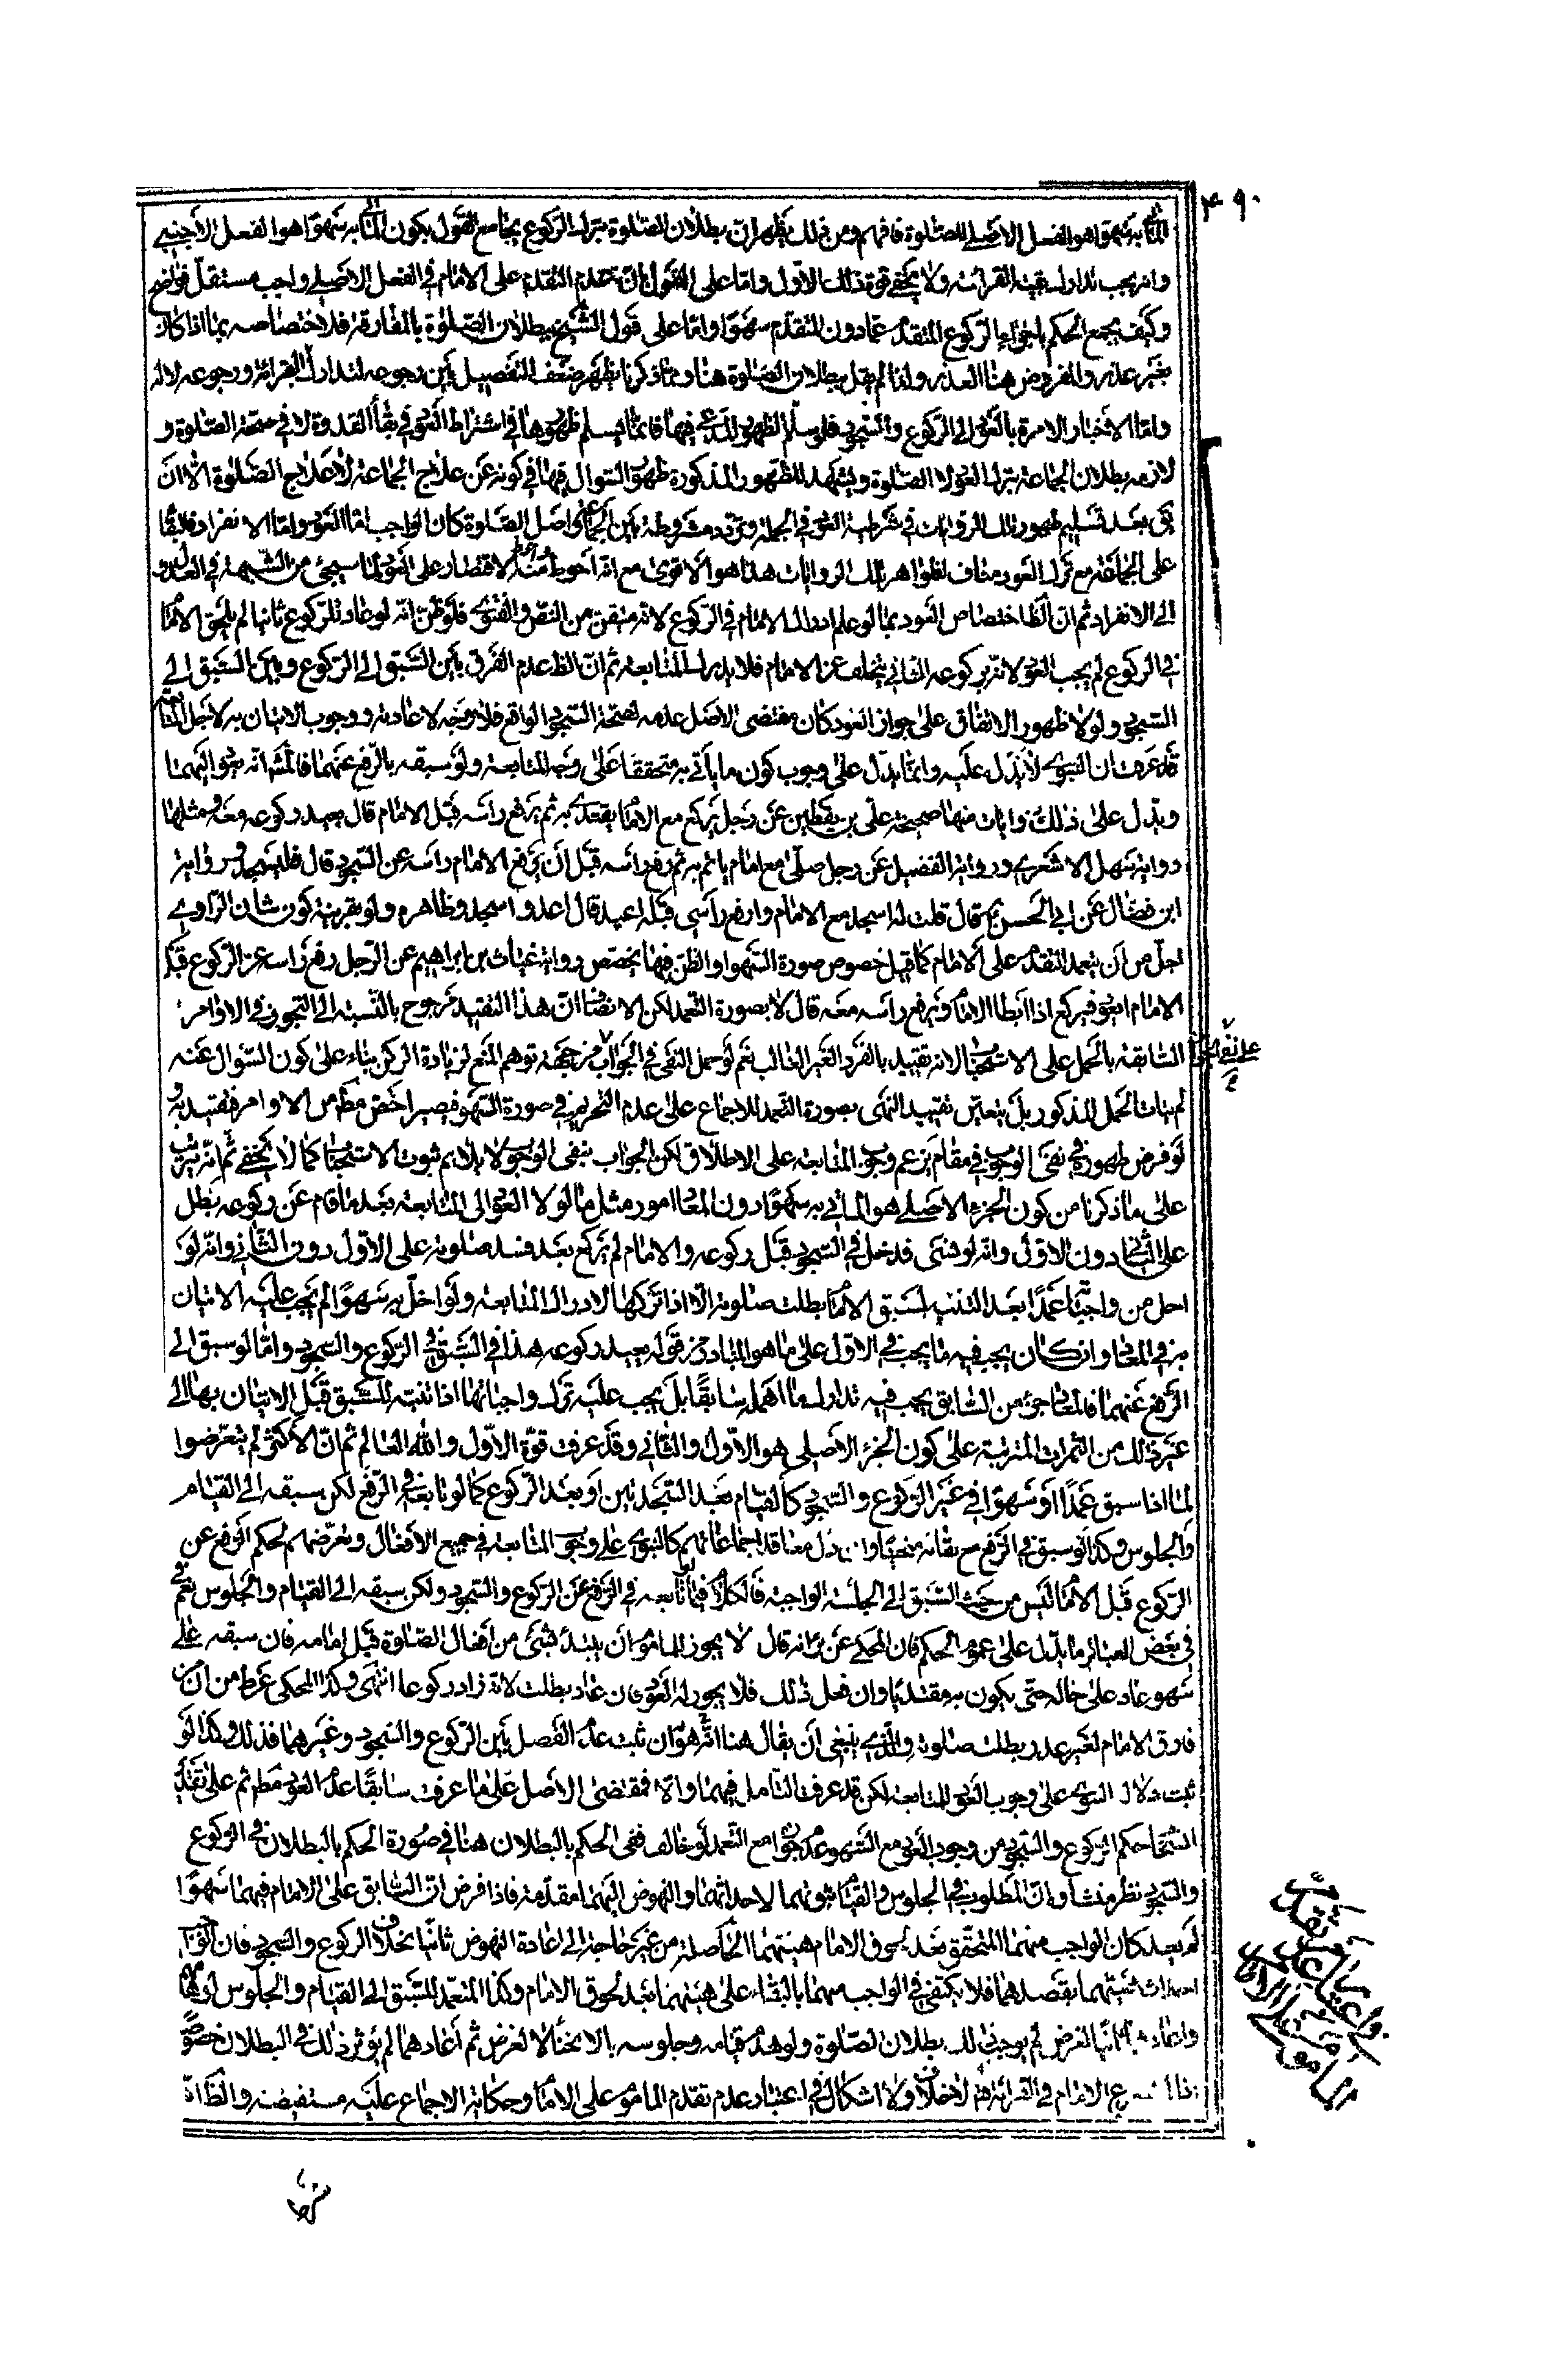 ٣٩٠
المأتي به سهوا هو الفعل الاصلي للصّلوة فافهم ومن ذلك يظهر انّ بطلان الصّلوة بترك الرّكوع يجامع القول بكون المأتي به سهوا هو الفعل الاجنبي
وانه يجب تدارك بقية القرائة ولا يخفى قوة ذلك الاول واما على القول بانّ عدم التقدم على الامام في الفعل الاصلي واجب مستقل فواضح
وكيف يجمع الحكم باجزاء الرّكوع المتقدم عمدا دون المتقدم سهوا واما على قول الشّيخ ببطلان الصّلوة بالمفارقة فلاختصاصه بما اذا كان
بغير عذر والمفروض هنا العذر ولذا لم يقل ببطلان الصّلوة هنا ومما ذكرنا يظهر ضعف التفصيل بين رجوعه لتدارك القرائة ورجوعه لا له
واما الاخبار الامرة بالعود الى الرّكوع والسّجود فلو سلّم الظهور المدعى فيها فانما يسلم ظهورها في اشتراط العود في بقاء القدوة لا في صحة الصّلوة و
لازمه بطلان الجماعة بترك العود لا الصّلوة ويشهد للظّهور المذكورة ظهور السّوال فيها في كونه عن علاج الجماعة لا علاج الصّلوة الا ان
بعد تسليم ظهور تلك الروايات في شرطية العود في الجملة وتردد مشروطه بين الجماعة واصل الصّلوة كان الواجب اما العود واما الانفراد فالبقاء
على الجماعة مع ترك العود مناف لظواهر تلك الروايات هذا هو الاقوى مع انه احوط منه الاقتصار على العود لما سيجئ من الشّبهة في العدول
الى الانفراد ثم ان الظ اختصاص العود بما لو علم ادراك الامام في الرّكوع لانه متيقن من النصّ والفتوى فلو ظنّ انه لو عاد للرّكوع ثانيا لم يلحق الامام
في الرّكوع لم يجب العود لانه بركوعه الثاني يتخلف عن الامام فلا يدرك المتابعة ثم انّ الظ عدم الفرق بين السّبق الى الرّكوع وبين السّبق الى
السّجود ولولا ظهور الاتفاق على جواز العود كان مقتضى الاصل عدمه لصحة السّجود الواقع فلا وجه لاعادته ووجوب الاتيان به لاجل المتابعة
قد عرفت ان النبوي لا يدل عليه وانما يدل على وجوب كون ما يأتي به متحققا على وجه المتابعة ولو سبقه بالرّفع عنهما فالمشهور انه يعود اليهما
ويدل على ذلك روايات منها صحيحة علي بن يقطين عن رجل يركع مع الامام يقتدي به ثم يرفع راسه قبل الامام قال يعيد ركوعه معه ومثلها
رواية سهل الاشعري ورواية الفضيل عن رجل صلّى مع امام ياتم به ثم رفع راسه قبل ان يرفع الامام راسه عن السّجود قال فليسجد ورواية
ابن فضال عن ابي الحسن ع قال قلت له اسجد مع الامام وارفع رأسي قبله اعيد قال اعد واسجد وظاهره ولو بقرينة كون شان الرّاوي
اجل من ان يتعمد التقدم على الامام كما قيل خصوص صورة السّهو او الظن فبها يخصص رواية غياث بن ابراهيم عن الرّجل رفع راسه عن الرّكوع قبل
الامام ايعود فيركع اذا ابطأ الامام ويرفع راسه معه قال لا بصورة التّعمد لكن الانصاف ان هذا التقييد مرجوح بالنسبة الى التجوز في الاوامر
السّابقة بالحمل على الاستحباب لانه تقييد بالفرد الغير الغالب نعم لو حمل النفي في الجواب من جهة توهم المنع لزيادة الركن بناء على كون السّوال عنه
لم يتات الحمل المذكور بل يتعيّن تقييد النهى بصورة التّعمد للاجماع على عدم التحريم في صورة السّهو فيصير اخص مط من الاوامر فيقيد به و
لو فرض ظهوره في نفى الوجوب في مقام زعم وجوب المتابعة على الاطلاق لكن الجواب بنفى الوجوب لا يلايم ثبوت الاستحباب كما لا يخفى ثم انه يترتب
على ما ذكرنا من كون الجزء الاصلي هو المأتي به سهوا دون المعاد امور مثل ما لو لا العود الى المتابعة بعد ما قام عن ركوعه بطل
على الثاني دون الاولى وانه لو نسى فدخل في السّجود قبل ركوعه والامام لم يركع بعد فسد صلوته على الاول دون الثاني وانه لو
اخل من واجباته عمدا بعد التنبه لسبق الامام بطلت صلوته الا اذا تركها لادراك المتابعة ولو اخلّ به سهوا لم يجب عليه الاتيان
به في المعاد وان كان يجب فيه ما يجب في الاول على ما هو المتبادر من قوله يعيد ركوعه هذا في السّبق الى الرّكوع والسّجود واما لو سبق الى
الرّفع عنهما فالمعاد جزء من السّابق يجب فيه تدارك ما اهمل سابقا بل يجب عليه ترك واجباتهما اذا تنبه للسّبق قبل الاتيان بها الى
غير ذلك من الثمرات المترتبة على كون الجزء الاصلي هو الاول والثاني وقد عرفت قوّة الاول والله العالم ثم انّ الاكثر لم يتعرّضوا
لما اذا سبق عمدا او سهوا في غير الرّكوع والسّجود كالقيام بعد السّجدتين او بعد الرّكوع كما لو تابعه في الرّفع لكن سبقه الى القيام
والجلوس وكذا لو سبق في الرّفع مع بقائه منحنيا وان دل معاقد اجماعاتهم كالنبوي على وجوب المتابعة في جميع الافعال وتعرّضهم لحكم الرّفع عن
الرّكوع قبل الامام ليس من حيث السّبق الى الجلسة الواجبة فالكلام فيما لو تابعه في الرّفع عن الرّكوع والسّجود ولكن سبقه الى القيام والجلوس نعم
في بعض العبائر ما يدل على عموم الحكم فان المحكي عن انه قال لا يجوز للماموم ان يبتدئ بشئ من افعال الصّلوة قبل امامه فان سبقه على
سهو عاد على حاله حتى يكون به مقتديا وان فعل ذلك فلا يجوز له العود فان عاد بطلت لانه زاد ركوعا انتهى وكذا المحكي عن ط من ان من
فارق الامام لغير عذر بطلت صلوته والذي ينبغي ان يقال هنا انه هو ان ثبت عدم الفصل بين الرّكوع والسّجود وغيرهما فذلك وكذا لو
ثبت دلالة النبوي على وجوب العود للمتابعة لكن قد عرفت التأمل فيهما والا فمقتضى الاصل على ما عرفت سابقا عدم العود مط ثم على تقدير
انسحاب حكم الرّكوع والسّجود من وجوب العود مع السّهو وعدم جوازه مع التّعمد لو خالف ففي الحكم بالبطلان هنا في صورة الحكم بالبطلان في الرّكوع
والسّجود نظر منشأه انّ المطلوب في الجلوس والقيام ثبوتهما لا احداثهما والنهوض اليهما مقدّمة فاذا فرض ان السّابق على الامام فيهما سهوا
لم يعد كان الواجب منهما المتحقق بعد لحوق الامام هيئتهما الحاصلة من غير حاجة الى اعادة النهوض ثانيا بخلاف الرّكوع والسّجود فان الواجب
احداث هيئتهما بقصدهما فلا يكتفى في الواجب منهما بالبقاء على هيئتهما بعد لحوق الامام وكذا المتعمّد للسّبق الى القيام والجلوس
واعاد ثانيا لغرض لم يوجب ذلك بطلان الصّلوة ولو هدم قيامه وجلوسه بالانحناء لا لغرض ثم اعادهما لم يؤثر ذلك في البطلان خصوصا
مع الامام في القرائة ولا اشكال في اعتبار عدم تقدم الماموم على الامام وحكاية الاجماع عليه مستفيضة والظ ان